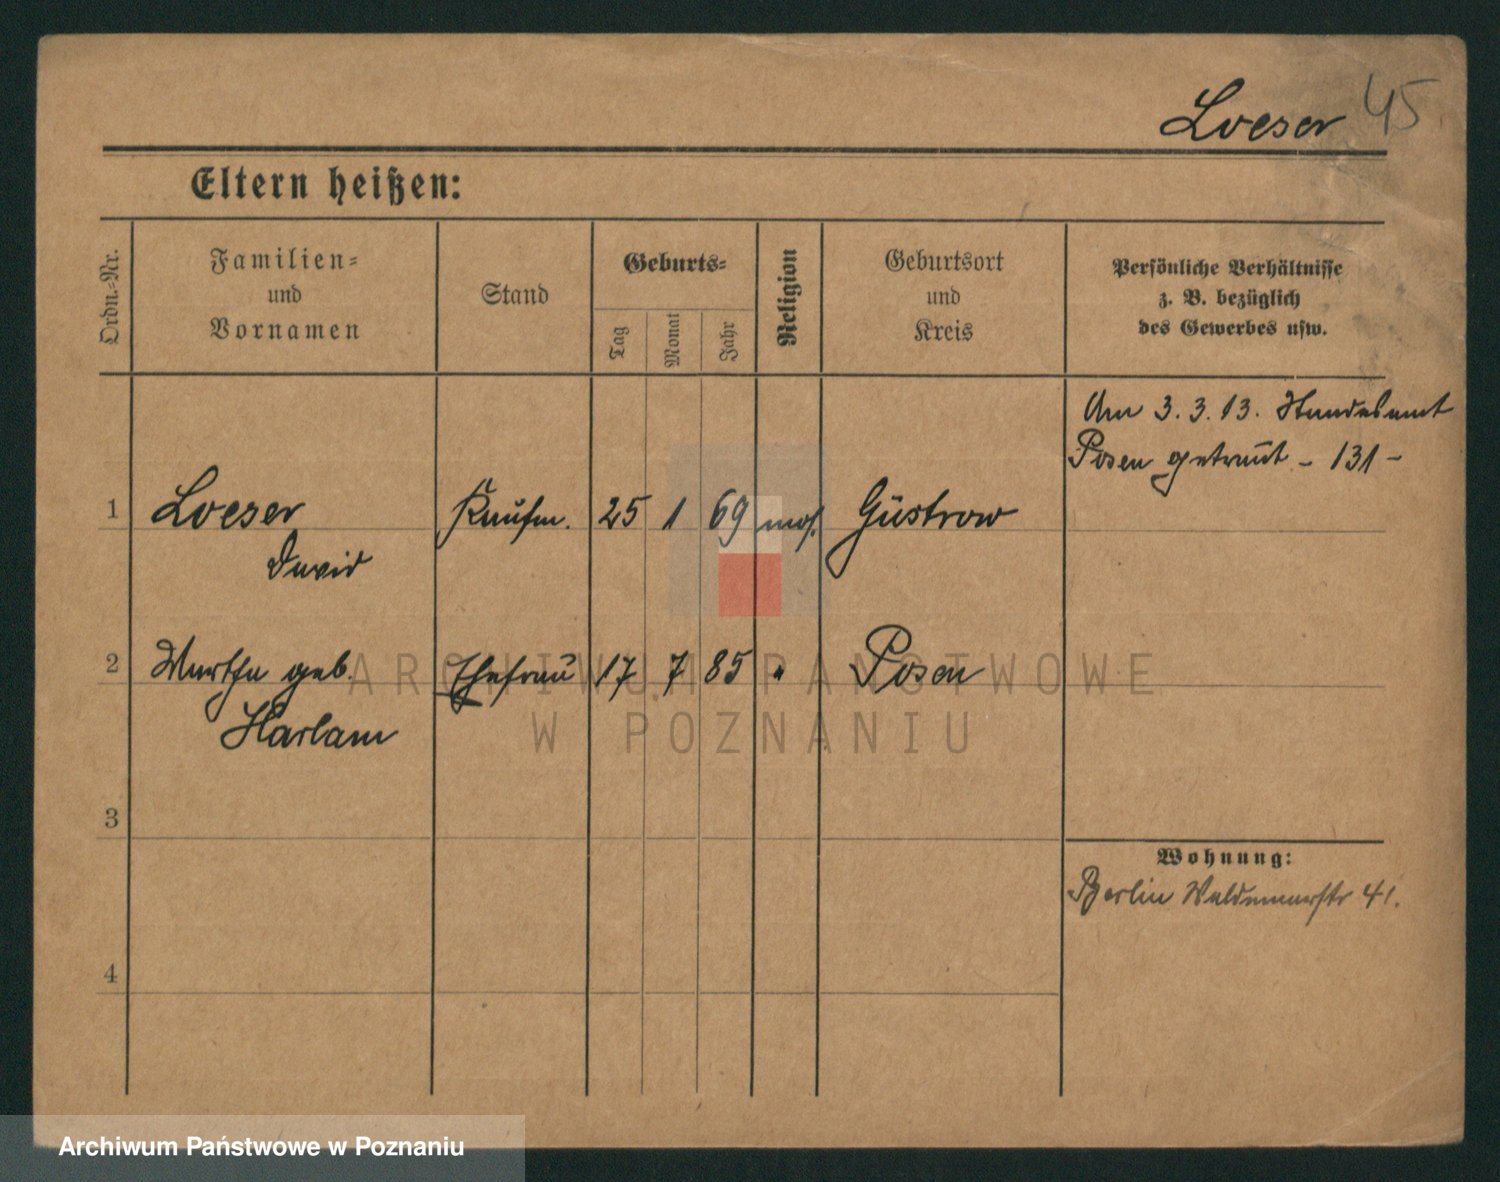 Loeser 45.
Eltern heißen:
Ordn.-Nr.
Familien-
und
Vornamen
Stand
Geburts-
Tag
Monat
Jahr
Religion
Geburtsort
und
Kreis
Persönliche Verhältnisse
z. B. bezüglich
des Gewerbes usw.
Am 3.3.13. Standesamt
Posen getraut - 131 -
1 Loeser Kaufm. 25 1 69 mos. Güstrow
David
2 Martha geb. Ehefrau 17 7 85 " Posen
Harlam
3
Wohnung:
Berlin Waldemarstr 41.
4
ARCHIWUM PAŃSTWOWE
W POZNANIU
Archiwum Państwowe w Poznaniu